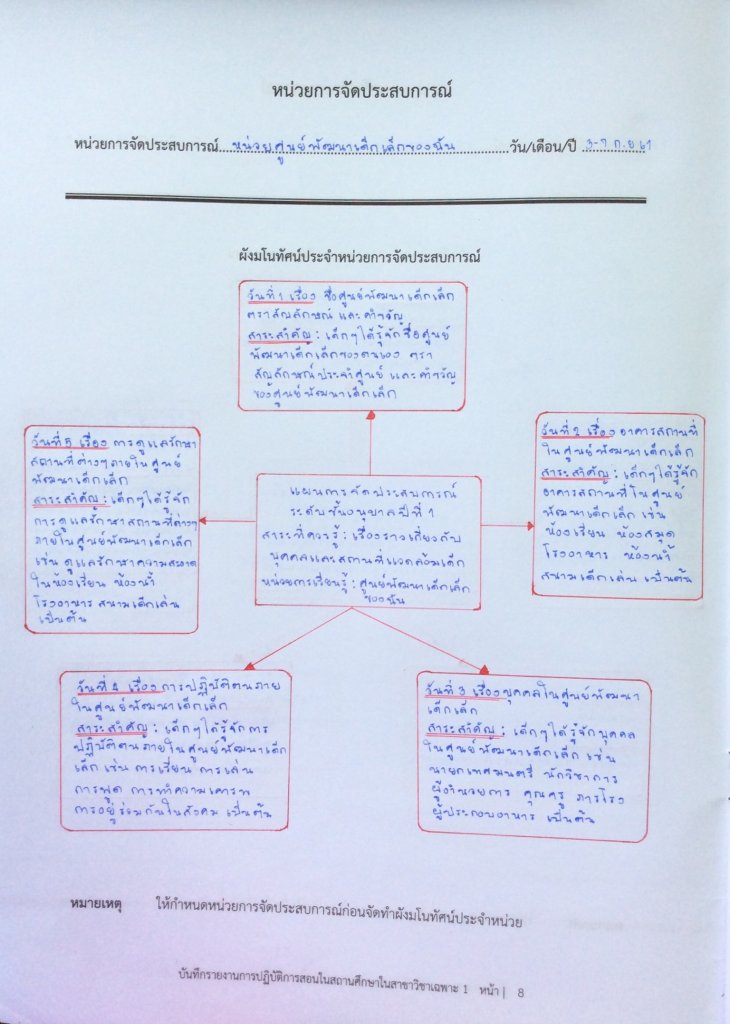 หน่วยการจัดประสบการณ์
หน่วยการจัดประสบการณ์....หน่วยศูนย์พัฒนาเด็กเล็กของฉัน....วัน/เดือน/ปี 3-7 ก.ย 61
ผังมโนทัศน์ประจำหน่วยการจัดประสบการณ์
วันที่ 1 เรื่อง ชื่อศูนย์พัฒนาเด็กเล็ก
ตราสัญลักษณ์ และคำขวัญ
สาระสำคัญ : เด็กๆได้รู้จักชื่อศูนย์
พัฒนาเด็กเล็กของตนเอง ตรา
สัญลักษณ์ประจำศูนย์ และคำขวัญ
ของศูนย์พัฒนาเด็กเล็ก
วันที่ 5 เรื่อง การดูแลรักษา
สถานที่ต่างๆภายในศูนย์
พัฒนาเด็กเล็ก
สาระสำคัญ : เด็กๆได้รู้จัก
การดูแลรักษาสถานที่ต่างๆ
ภายในศูนย์พัฒนาเด็กเล็ก
เช่น ดูแลรักษาความสะอาด
ในห้องเรียน ห้องน้ำ
โรงอาหาร สนามเด็กเล่น
เป็นต้น
แผนการจัดประสบการณ์
ระดับชั้นอนุบาลปีที่ 1
สาระที่ควรรู้ : เรื่องราวเกี่ยวกับ
บุคคลและสถานที่แวดล้อมเด็ก
หน่วยการเรียนรู้ : ศูนย์พัฒนาเด็กเล็ก
ของฉัน
วันที่ 2 เรื่อง อาคารสถานที่
ในศูนย์พัฒนาเด็กเล็ก
สาระสำคัญ : เด็กๆได้รู้จัก
อาคารสถานที่ในศูนย์
พัฒนาเด็กเล็ก เช่น
ห้องเรียน ห้องสมุด
โรงอาหาร ห้องน้ำ
สนามเด็กเล่น เป็นต้น
วันที่ 4 เรื่อง การปฏิบัติตนภาย
ในศูนย์พัฒนาเด็กเล็ก
สาระสำคัญ : เด็กๆได้รู้จักการ
ปฏิบัติตนภายในศูนย์พัฒนาเด็ก
เล็ก เช่น การเรียน การเล่น
การพูด การทำความเคารพ
การอยู่ร่วมกันในสังคม เป็นต้น
วันที่ 3 เรื่อง บุคคลในศูนย์พัฒนา
เด็กเล็ก
สาระสำคัญ : เด็กๆได้รู้จักบุคคล
ในศูนย์พัฒนาเด็กเล็ก เช่น
นายกเทศมนตรี นักวิชาการ
ผู้อำนวยการ คุณครู ภารโรง
ผู้ประกอบอาหาร เป็นต้น
หมายเหตุ ให้กำหนดหน่วยการจัดประสบการณ์ก่อนจัดทำผังมโนทัศน์ประจำหน่วย
บันทึกรายงานการปฏิบัติการสอนในสถานศึกษาในสาขาวิชาเฉพาะ 1 หน้า | 8